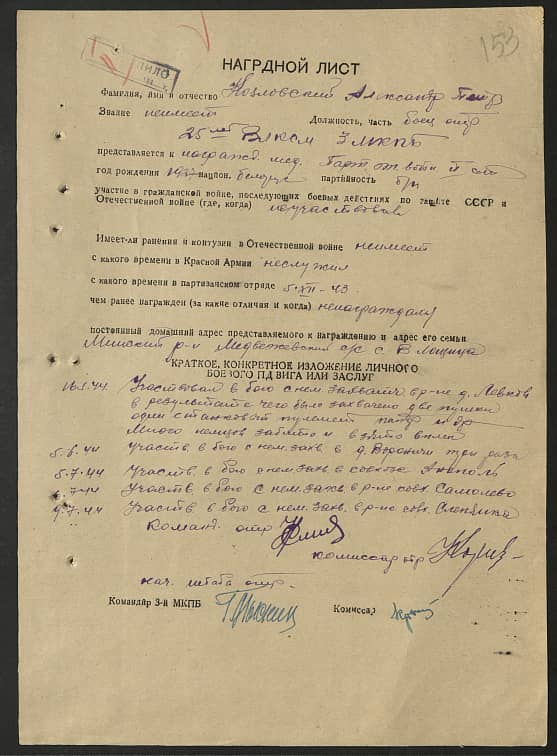 153
НАГРДНОЙ ЛИСТ
Фамилия, имя и отчество Козловский Александр Петр
Звание неимеет Должность, часть боец отр
25 лет ВЛКСМ 3 МКПБ
представляется к награжд. мед. Парт. от. войн. II ст
год рождения национ. белорус партийность б/п
участие в гражданской войне, последующих боевых действиях по защите СССР и
Отечественной войне (где, когда) неучаствовал
Имеет-ли ранения и контузии в Отечественной войне неимеет
с какого времени в Красной Армии неслужил
с какого времени в партизанском отряде 5.XII-43.
чем ранее награжден (за какие отличия и когда) ненаграждался
постоянный домашний адрес представляемого к награждению и адрес его семьи
Минский р-н Медвежевский с/с с
КРАТКОЕ, КОНКРЕТНОЕ ИЗЛОЖЕНИЕ ЛИЧНОГО
БОЕВОГО П ДВИГА ИЛИ ЗАСЛУГ
Участвовал в бою с нем. захватч. в р-не д.
в результате чего было захвачено две пушки
один станковый пулемет
Много немцов забито и взято в плен
5.6.44 Участв. в бою с нем. захв. в д. Вороничи три раза
5.7.44 Участв. в бою с нем. захв. в совхозе
7.44 Участв. в бою с нем. захв. в р-не совх.
9.7.44 Участв. в бою с нем. захв. в р-не совх.
Команд. отр.
комиссар отр
нач. штаба отр.
Командир 3-й МКПБ Комиссар